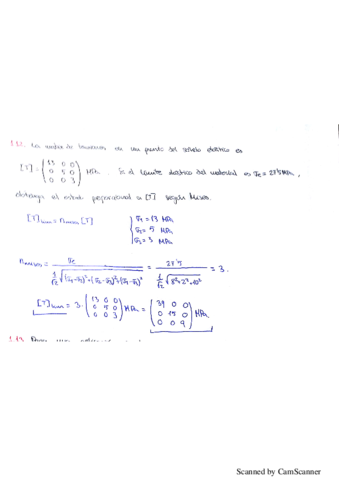 1.12. La matriz de tensiones en un punto del sólido elástico es
[T] = (13 0 0 / 0 5 0 / 0 0 3) MPa. Si el límite elástico del material es σe = 27'5 MPa,
obtenga el estado proporcional a [T] según Mises.
[T]lim = nmises [T] { σ1 = 13 MPa
σ2 = 5 MPa
σ3 = 3 MPa
nmises = σe / (1/√2 √((σ1-σ2)²+(σ2-σ3)²+(σ3-σ1)²)) = 27'5 / (1/√2 √(8²+2²+10²)) = 3.
[T]lim = 3 · (13 0 0 / 0 5 0 / 0 0 3) MPa = (39 0 0 / 0 15 0 / 0 0 9) MPa
1.13.
Scanned by CamScanner